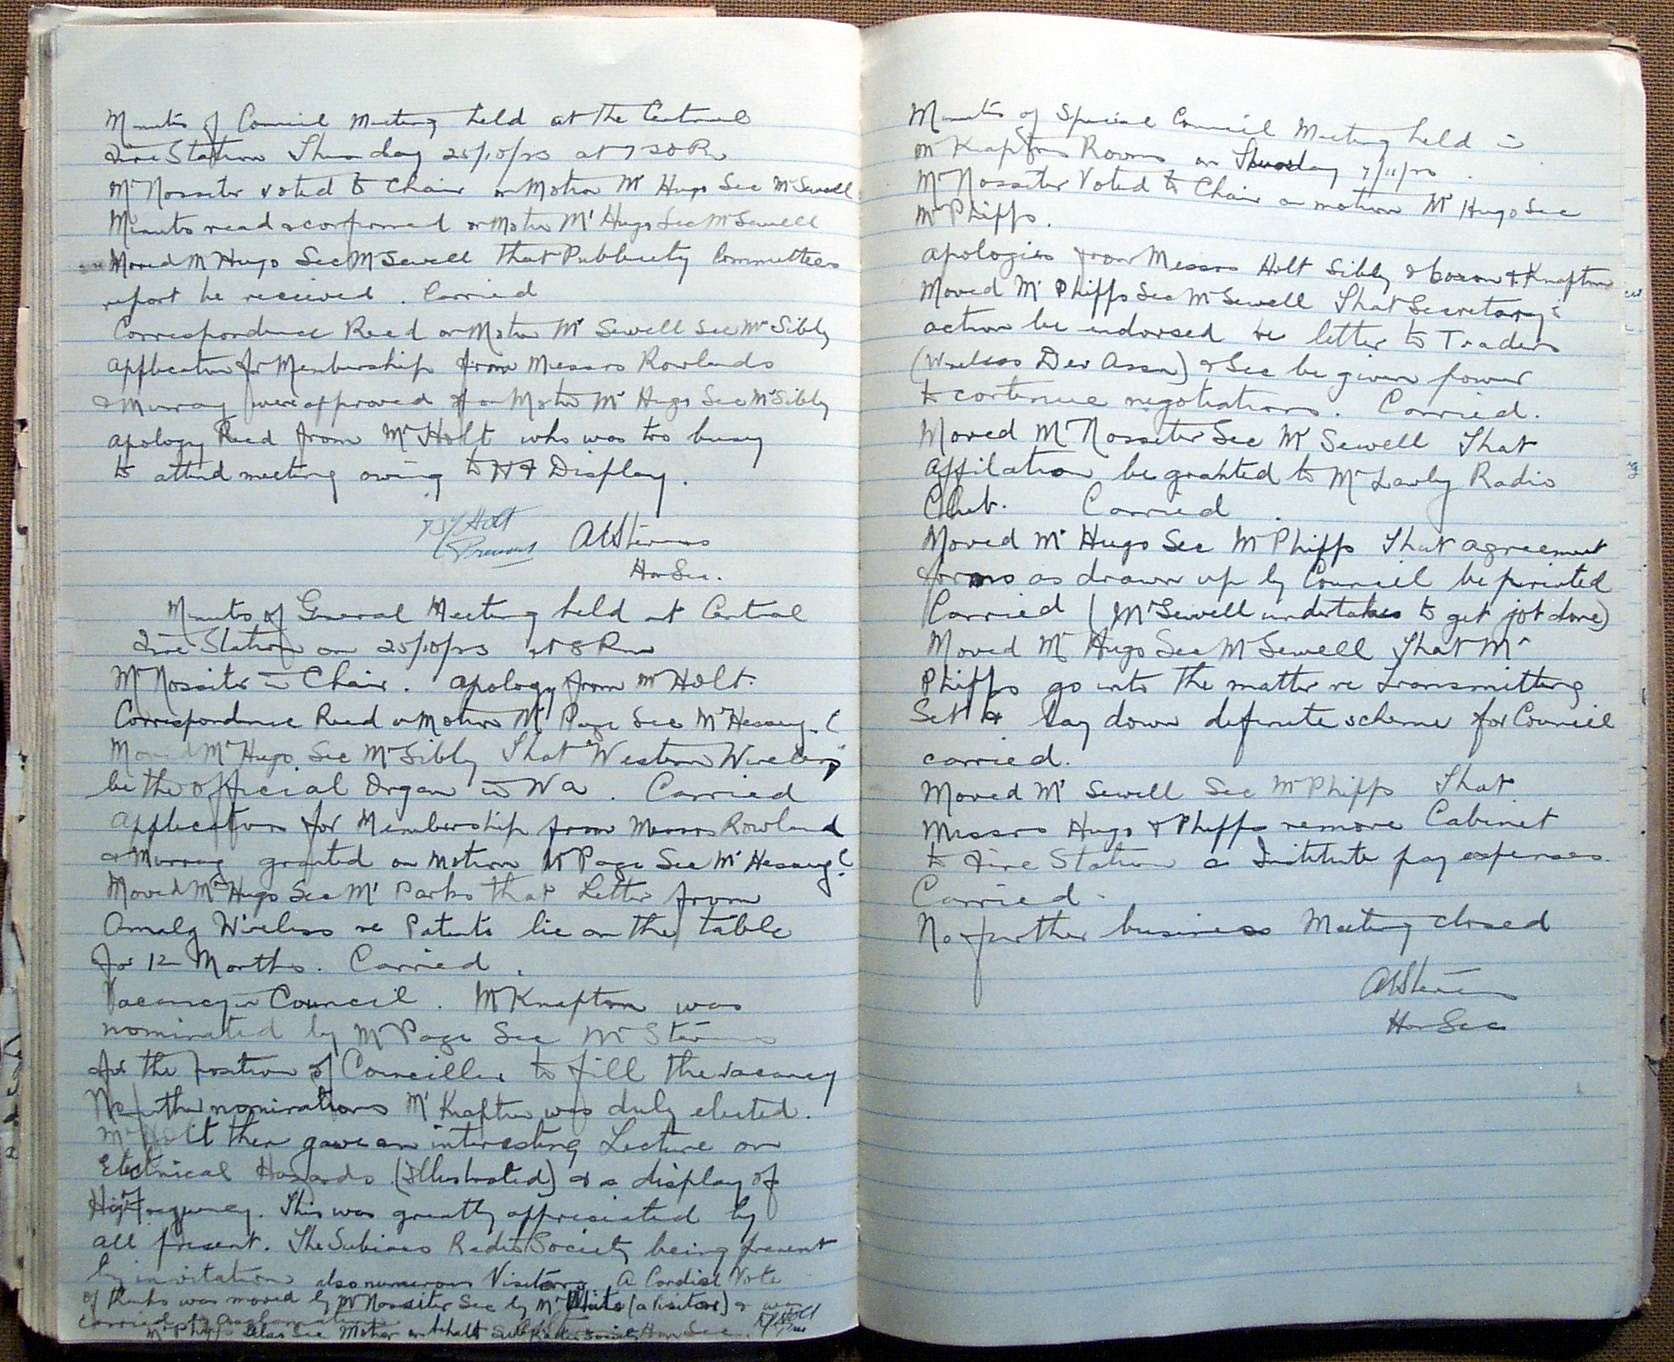 Minutes of Council Meeting held at the Central
Fire Station Thursday 25/10/23 at 7 30 Pm
Mr Nossiter voted to Chair on Motion Mr Hugo Sec Mr Sewell
Minutes read & confirmed on Motion Mr Hugo Sec Mr Sewell
Moved Mr Hugo Sec Mr Sewell that Publicity Committees
report be received. Carried
Correspondence Recd on Motion Mr Sewell Sec Mr Sibly
Application for Membership from Messrs Rowlands
& Murray were approved of on Motion Mr Hugo Sec Mr Sibly
apology Recd from Mr Holt who was too busy
to attend meeting owing to H F Display.
Holt
President
A E Stevens
Hon Sec.
Minutes of General Meeting held at Central
Fire Station on 25/10/23 at 8 Pm
Mr Nossiter in Chair. apology from Mr Holt.
Correspondence Recd on Motion Mr Page Sec Mr Hessey (
Moved Mr Hugo Sec Mr Sibly That "Western Wireless"
be the official Organ in W a. Carried
Application for Membership from Messrs Rowland
& Murray granted on Motion Mr Page Sec Mr Hessey (
Moved Mr Hugo Sec Mr Parks that Letter from
Amalg Wireless re Patents lie on the table
for 12 Months. Carried.
Vacancy in Council. Mr Knapton was
nominated by Mr Page Sec Mr Stevens
for the position of Councillor to fill the vacancy
No further nominations Mr Knapton was duly elected.
Mr Holt then gave an interesting Lecture on
Electrical Hazards (illustrated) & a display of
High Frequency. This was greatly appreciated by
all present. The Subiaco Radio Society being present
by invitation also numerous Visitors. A Cordial Vote
of thanks was moved by Mr Nossiter Sec by Mr White (a visitor) & was
carried by acclamation
Mr Phipps also Sec Motion on behalf Sub Radio Society Hon Sec.
Holt
Pres
Minutes of Special Council Meeting held in
Mr Knaptons Rooms on Thursday 7/11/23
Mr Nossiter Voted to Chair on motion Mr Hugo Sec
Mr Phipps.
apologies from Messrs Holt Sibly & Coxon & Knapton
Moved Mr Phipps Sec Mr Sewell That Secretary's
action be endorsed re letter to Traders
(Wireless Dev Assn) & Sec be given power
to continue negotiations. Carried.
Moved Mr Nossiter Sec Mr Sewell That
Affilation be granted to Mt Lawley Radio
Club. Carried.
Moved Mr Hugo Sec Mr Phipps That agreement
forms as drawn up by Council be printed
Carried (Mr Sewell undertakes to get job done)
Moved Mr Hugo Sec Mr Sewell That Mr
Phipps go into the matter re transmitting
Set & lay down definite scheme for Council
carried.
Moved Mr Sewell Sec Mr Phipps That
Messrs Hugo & Phipps remove Cabinet
to Fire Station & Institute pay expenses.
Carried.
No further business Meeting closed
A E Stevens
Hon Sec